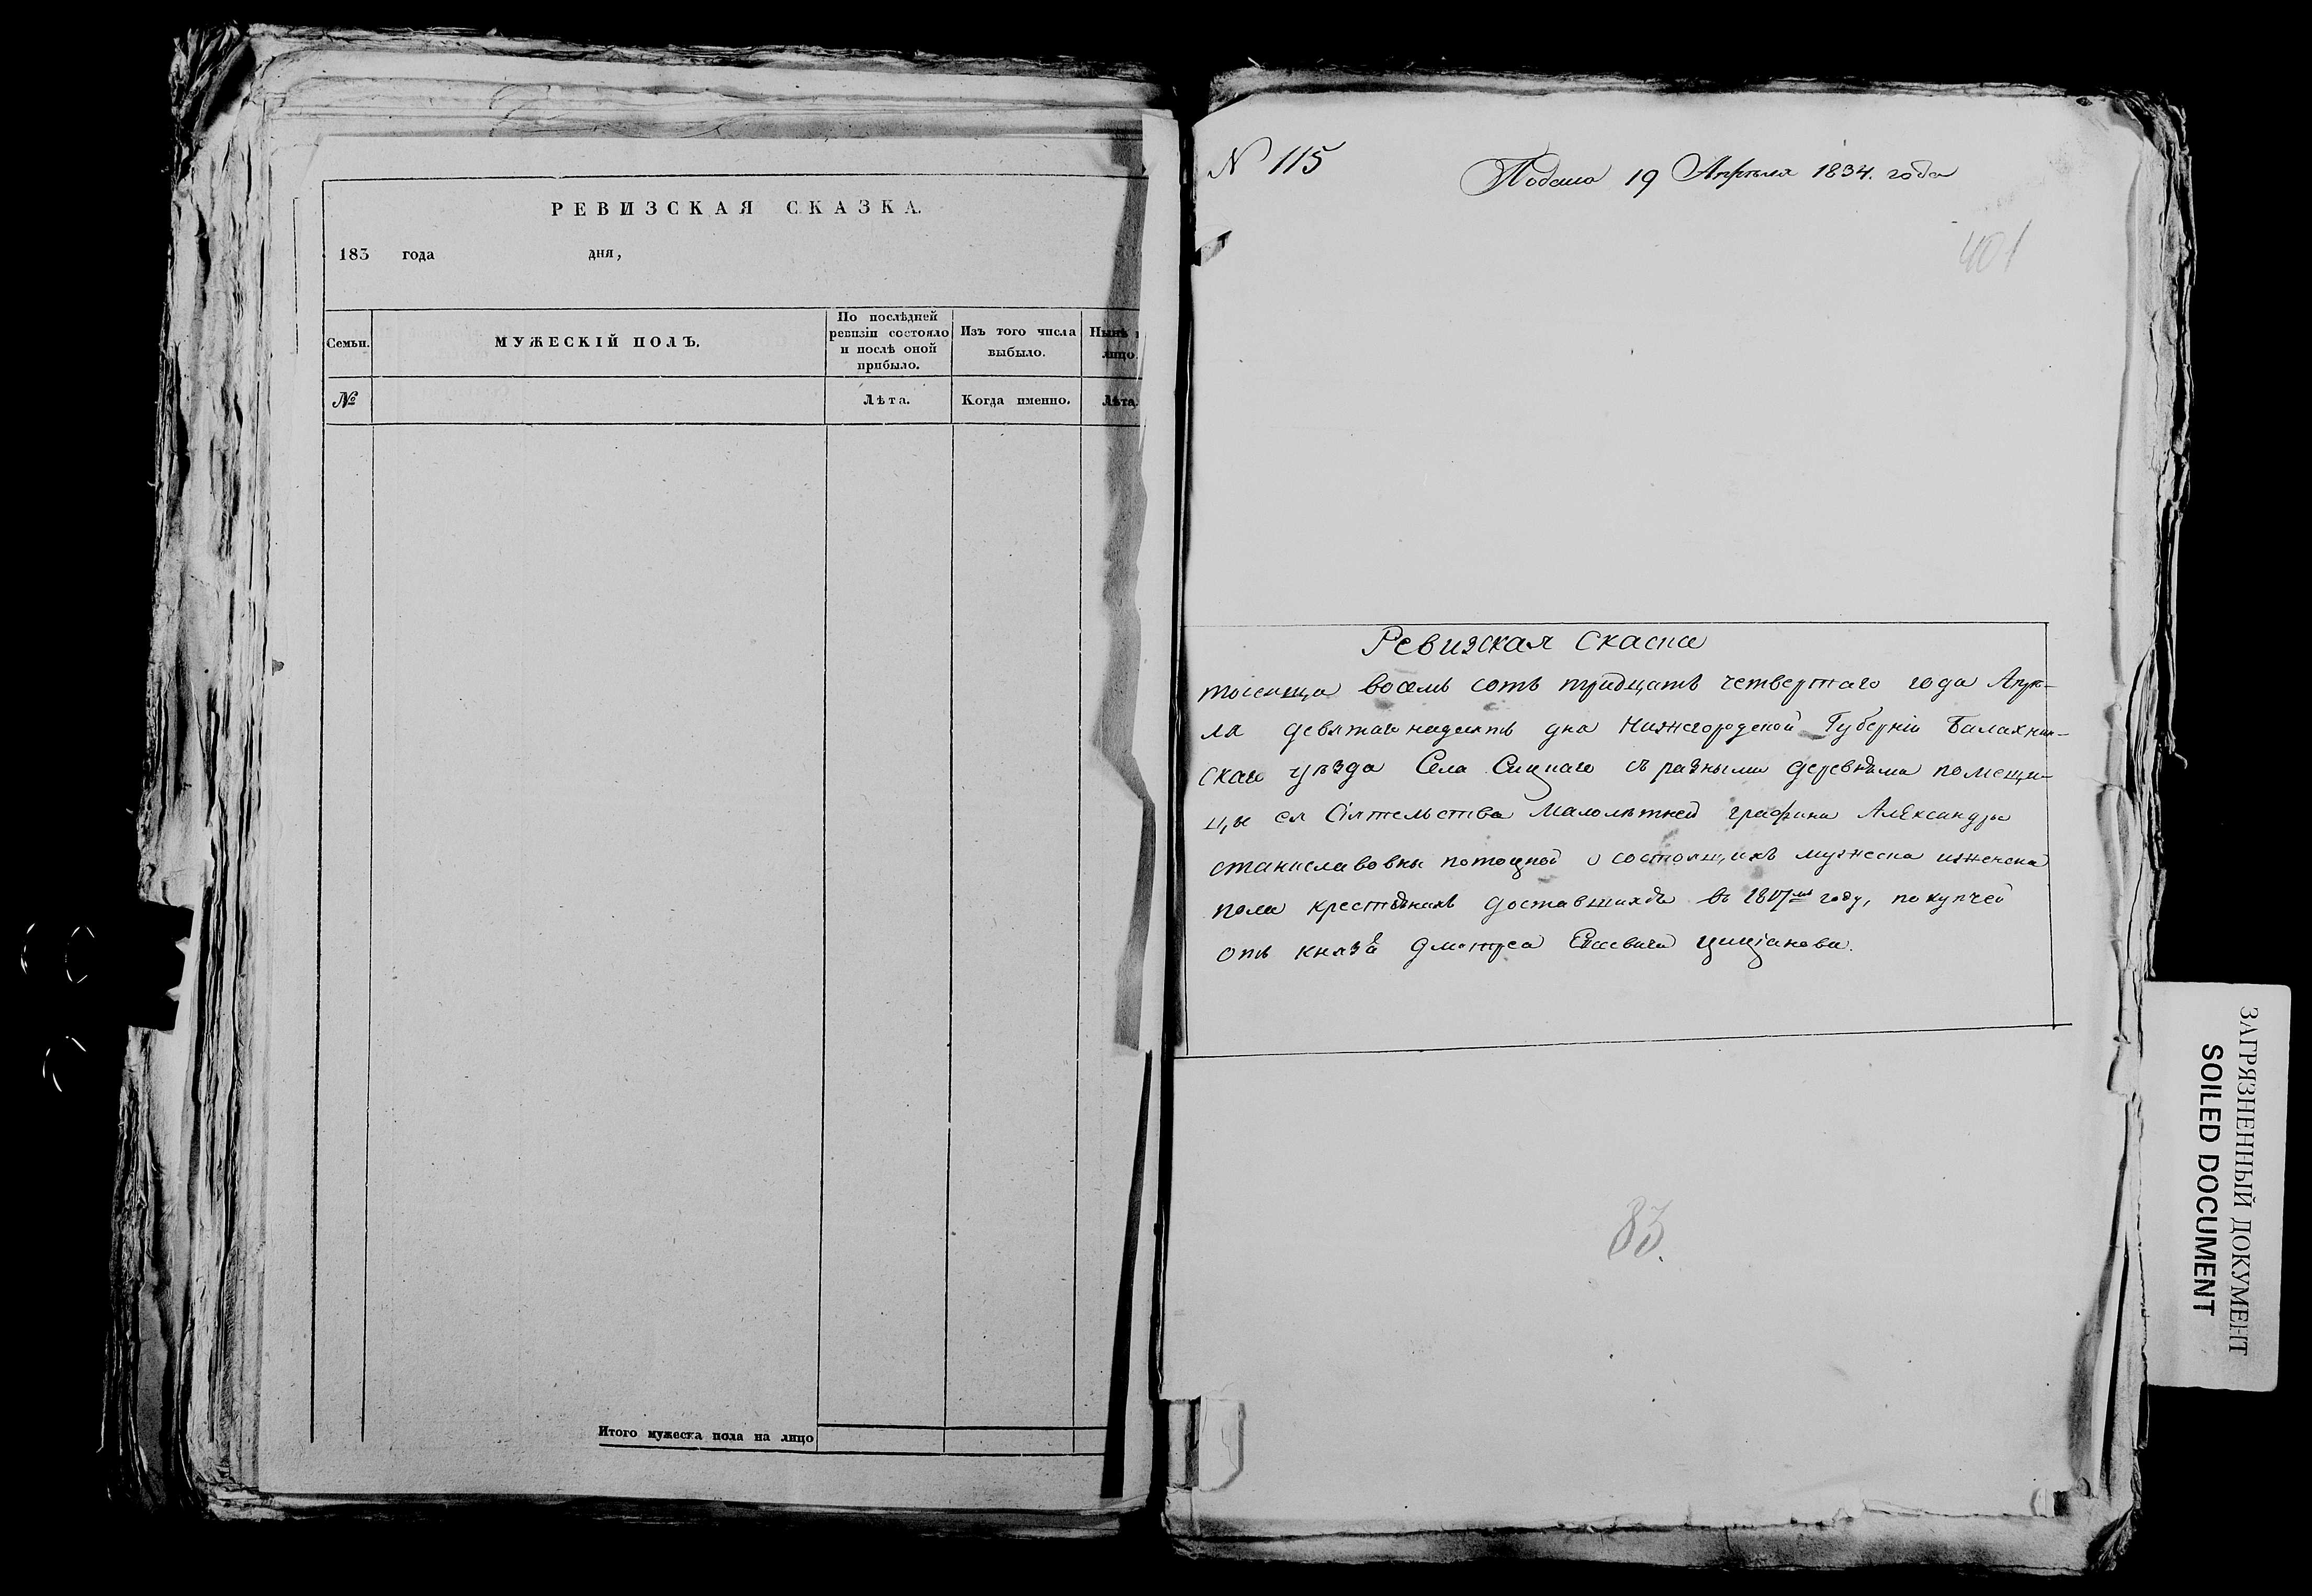 РЕВИЗСКАЯ СКАЗКА.
183 года дня,
Семьи.
МУЖЕСКІЙ ПОЛЪ.
По послѣдней
ревизіи состояло
и послѣ оной
прибыло.
Изъ того числа
выбыло.
Нынѣ
лицо.
№
Лѣта.
Когда именно.
Лѣта.
Итого мужеска пола на лицо
N 115
Подана 19 Апрѣля 1834. года
401
Ревизская Скаска
тысяща восемь сотъ тридцать четвертаго года Апрѣ-
ля девятаго надесять дня Нижегородской Губерніи Балахнин-
скаго уѣзда Села съ разными деревнями помещи-
цы ея Сіятельства Малолѣтней графини Александры
станиславовны потоцкой о состоящихъ мужеска иженска
пола крестьянахъ доставшихся въ году, покупчей
отъ князя дмитрея цицианова.
83.
ЗАГРЯЗНЕННЫЙ ДОКУМЕНТ
SOILED DOCUMENT